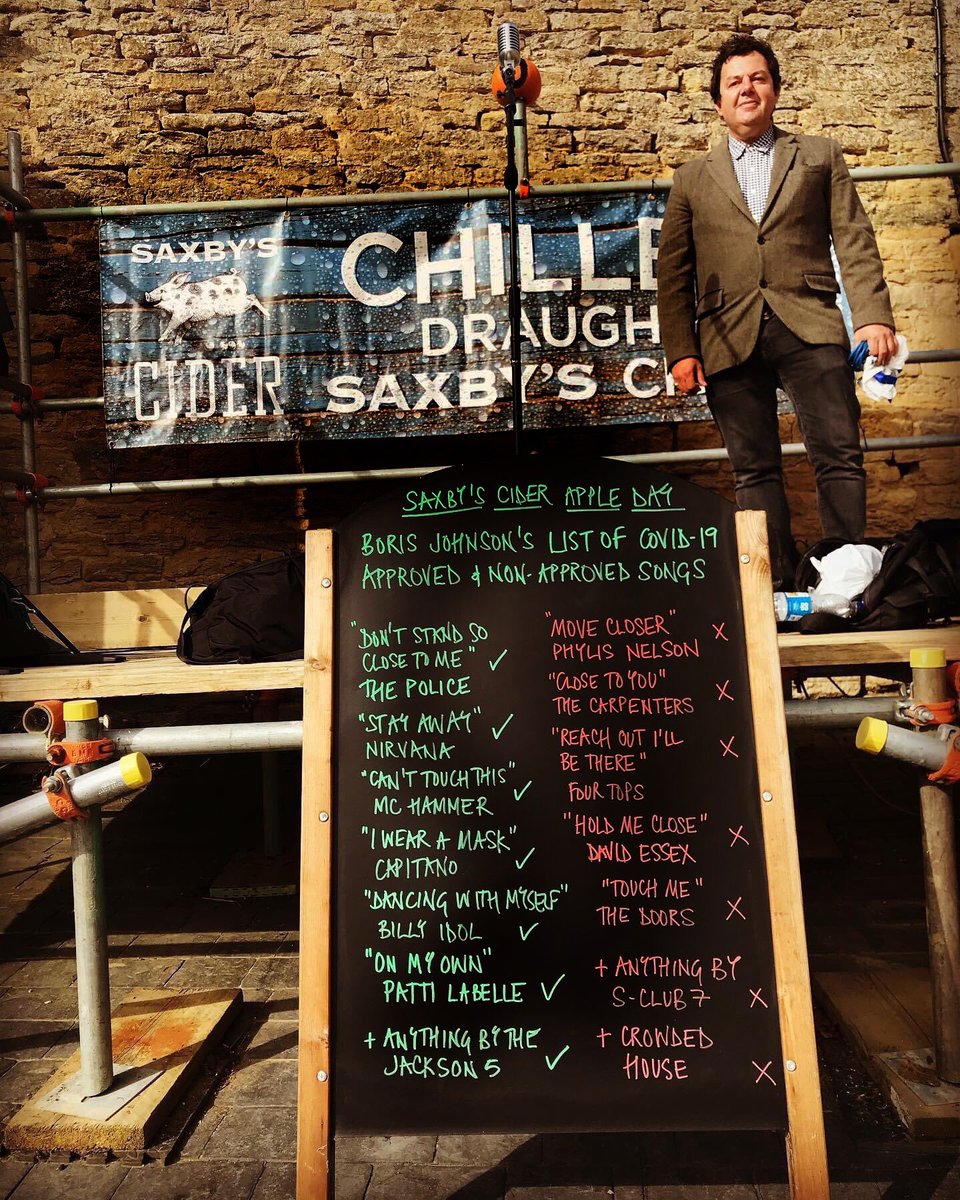 SAXBY'S
CIDER
CHILLE
DRAUGH
SAXBY'S CI
SAXBY'S CIDER APPLE DAY
BORIS JOHNSON'S LIST OF COVID-19
APPROVED & NON-APPROVED SONGS
"DON'T STAND SO
CLOSE TO ME" ✓
THE POLICE
"STAY AWAY" ✓
NIRVANA
"CAN'T TOUCH THIS" ✓
MC HAMMER
"I WEAR A MASK"
CAPITANO ✓
"DANCING WITH MYSELF"
BILLY IDOL ✓
"ON MY OWN"
PATTI LABELLE ✓
+ ANYTHING BY THE
JACKSON 5 ✓
"MOVE CLOSER" X
PHYLIS NELSON
"CLOSE TO YOU" X
THE CARPENTERS
"REACH OUT I'LL X
BE THERE"
FOUR TOPS
"HOLD ME CLOSE" X
DAVID ESSEX
"TOUCH ME" X
THE DOORS
+ ANYTHING BY
S-CLUB 7 X
+ CROWDED
HOUSE X